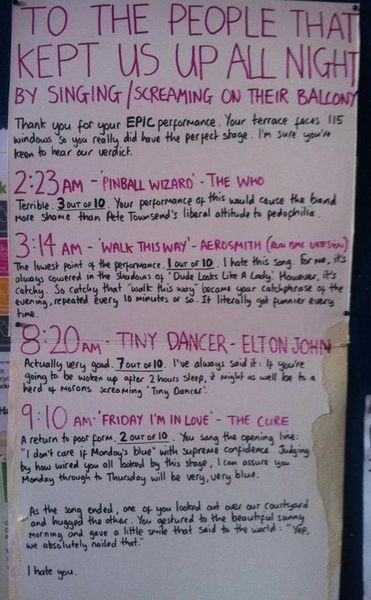 TO THE PEOPLE THAT
KEPT US UP ALL NIGHT
BY SINGING/SCREAMING ON THEIR BALCONY
Thank you for your EPIC performance. Your terrace faces 115
windows so you really did have the perfect stage. I'm sure you're
keen to hear our verdict.
2:23 AM - 'PINBALL WIZARD' - THE WHO
Terrible. 3 out of 10. Your performance of this would cause the band
more shame than Pete Townsend's liberal attitude to pedophilia.
3:14 AM - 'WALK THIS WAY' - AEROSMITH (RUN DMC VERSION)
The lowest point of the performance. 1 out of 10. I hate this song. For me, it's
always cowered in the shadows of 'Dude Looks Like A Lady'. However, it's
catchy. So catchy that "walk this way" became your catchphrase of the
evening, repeated every 10 minutes or so. It literally got funnier every
time.
8:20 AM - TINY DANCER - ELTON JOHN
Actually very good. 7 out of 10. I've always said it: If you're
going to be woken up after 2 hours sleep, it might as well be to a
herd of morons screaming 'Tiny Dancer'.
9:10 AM - 'FRIDAY I'M IN LOVE' - THE CURE
A return to poor form. 2 out of 10. You sang the opening line:
"I don't care if Monday's blue" with supreme confidence. Judging
by how wired you all looked by this stage, I can assure you
Monday through to Thursday will be very, very blue.
As the song ended, one of you looked out over our courtyard
and hugged the other. You gestured to the beautiful sunny
morning and gave a little smile that said to the world: "Yep,
we absolutely nailed that."
I hate you.